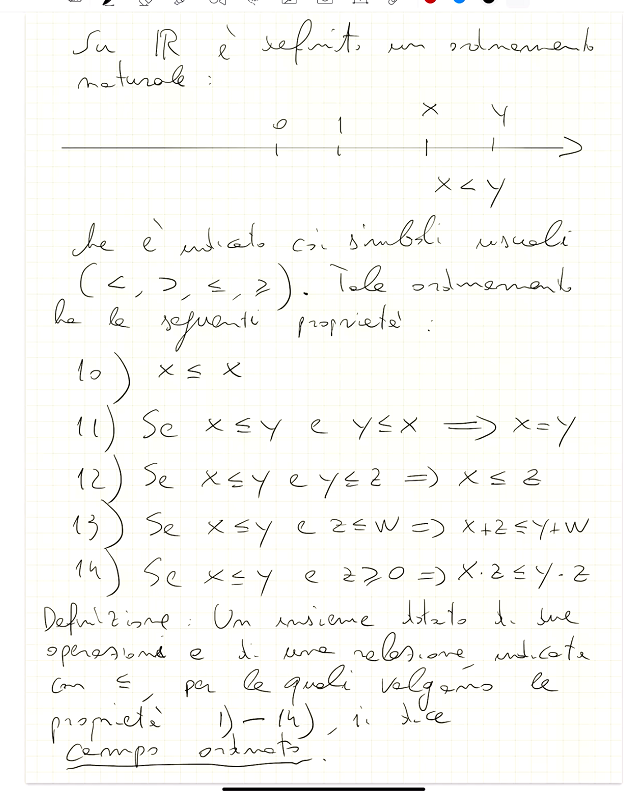 Su ℝ è definito un ordinamento
naturale :
0 1 x y
x < y
che è indicato coi simboli usuali
( <, >, ≤, ≥ ). Tale ordinamento
ha le seguenti proprietà :
10) x ≤ x
11) Se x ≤ y e y ≤ x ⟹ x = y
12) Se x ≤ y e y ≤ z ⟹ x ≤ z
13) Se x ≤ y e z ≤ w ⟹ x+z ≤ y+w
14) Se x ≤ y e z ≥ 0 ⟹ x · z ≤ y · z
Definizione : Un insieme dotato di due
operazioni e di una relazione, indicata
con ≤, per le quali valgano le
proprietà 1) – 14), si dice
campo ordinato.